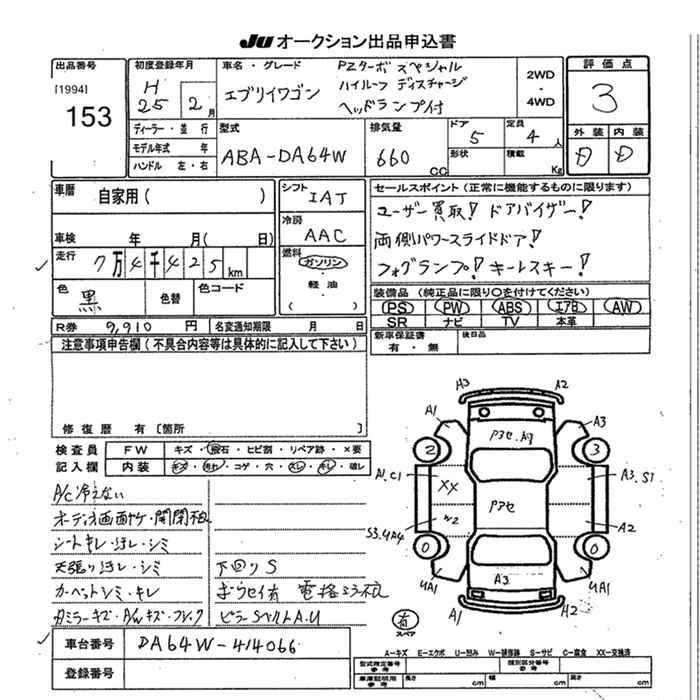 JU オークション出品申込書
出品番号
[1994]
153
初度登録年月
H 25 2月
ディーラー・並行
モデル年式 年
ハンドル 左・右
車名・グレード
PZターボスペシャル
エブリイワゴン ハイルーフ ディスチャージ
ヘッドランプ付
2WD
・
4WD
評価点
3
外装 内装
D D
型式
ABA-DA64W
排気量
660 CC
ドア 5
形状
定員 4人
積載 Kg
車暦 自家用( )
車検 年 月( 日)
走行 7万4千425km
色 黒
色替
色コード
シフト IAT
冷房 AAC
燃料
ガソリン
・
軽油
( )
セールスポイント(正常に機能するものに限ります)
ユーザー買取! ドアバイザー!
両側パワースライドドア!
フォグランプ! キーレスキー!
装備品(純正品に限り○を付けてください)
PS PW ABS エアB AW
SR ナビ TV 本革
新車保証書
有・無
後日品
R券 9,910円
名変通知期限 月 日
注意事項申告欄(不具合内容等は具体的に記入して下さい)
修復歴 有〔箇所 〕
検査員 FW キズ・飛石・ヒビ割・リペア跡・×要
記入欄 内装 キズ・汚れ・コゲ・穴・スレ・キレ・破レ
A/C冷えない
オーディオ画面ヤケ・開閉不良
シートキレ・ヨレ・シミ
天張りヨレ・シミ
カーペットシミ・キレ
下回りS
ボウセイ有 電格ミラ不良
ピラーSベルトA.U
A3 A2
A1 A3
アセ.A9
2 3
A1.C1 XX A3.S1
アセ
S3.UA4 W2 A2
0 0
UA1 A3 UA1
A1 A2
有
スペア
車台番号 DA64W-414066
登録番号
A-キズ E-エクボ U-凹み W-補修跡 S-サビ C-腐食 XX-交換済
型式指定番号
参考
類別区分番号
参考
車庫証明用
参考
長さ cm
幅 cm
高さ cm